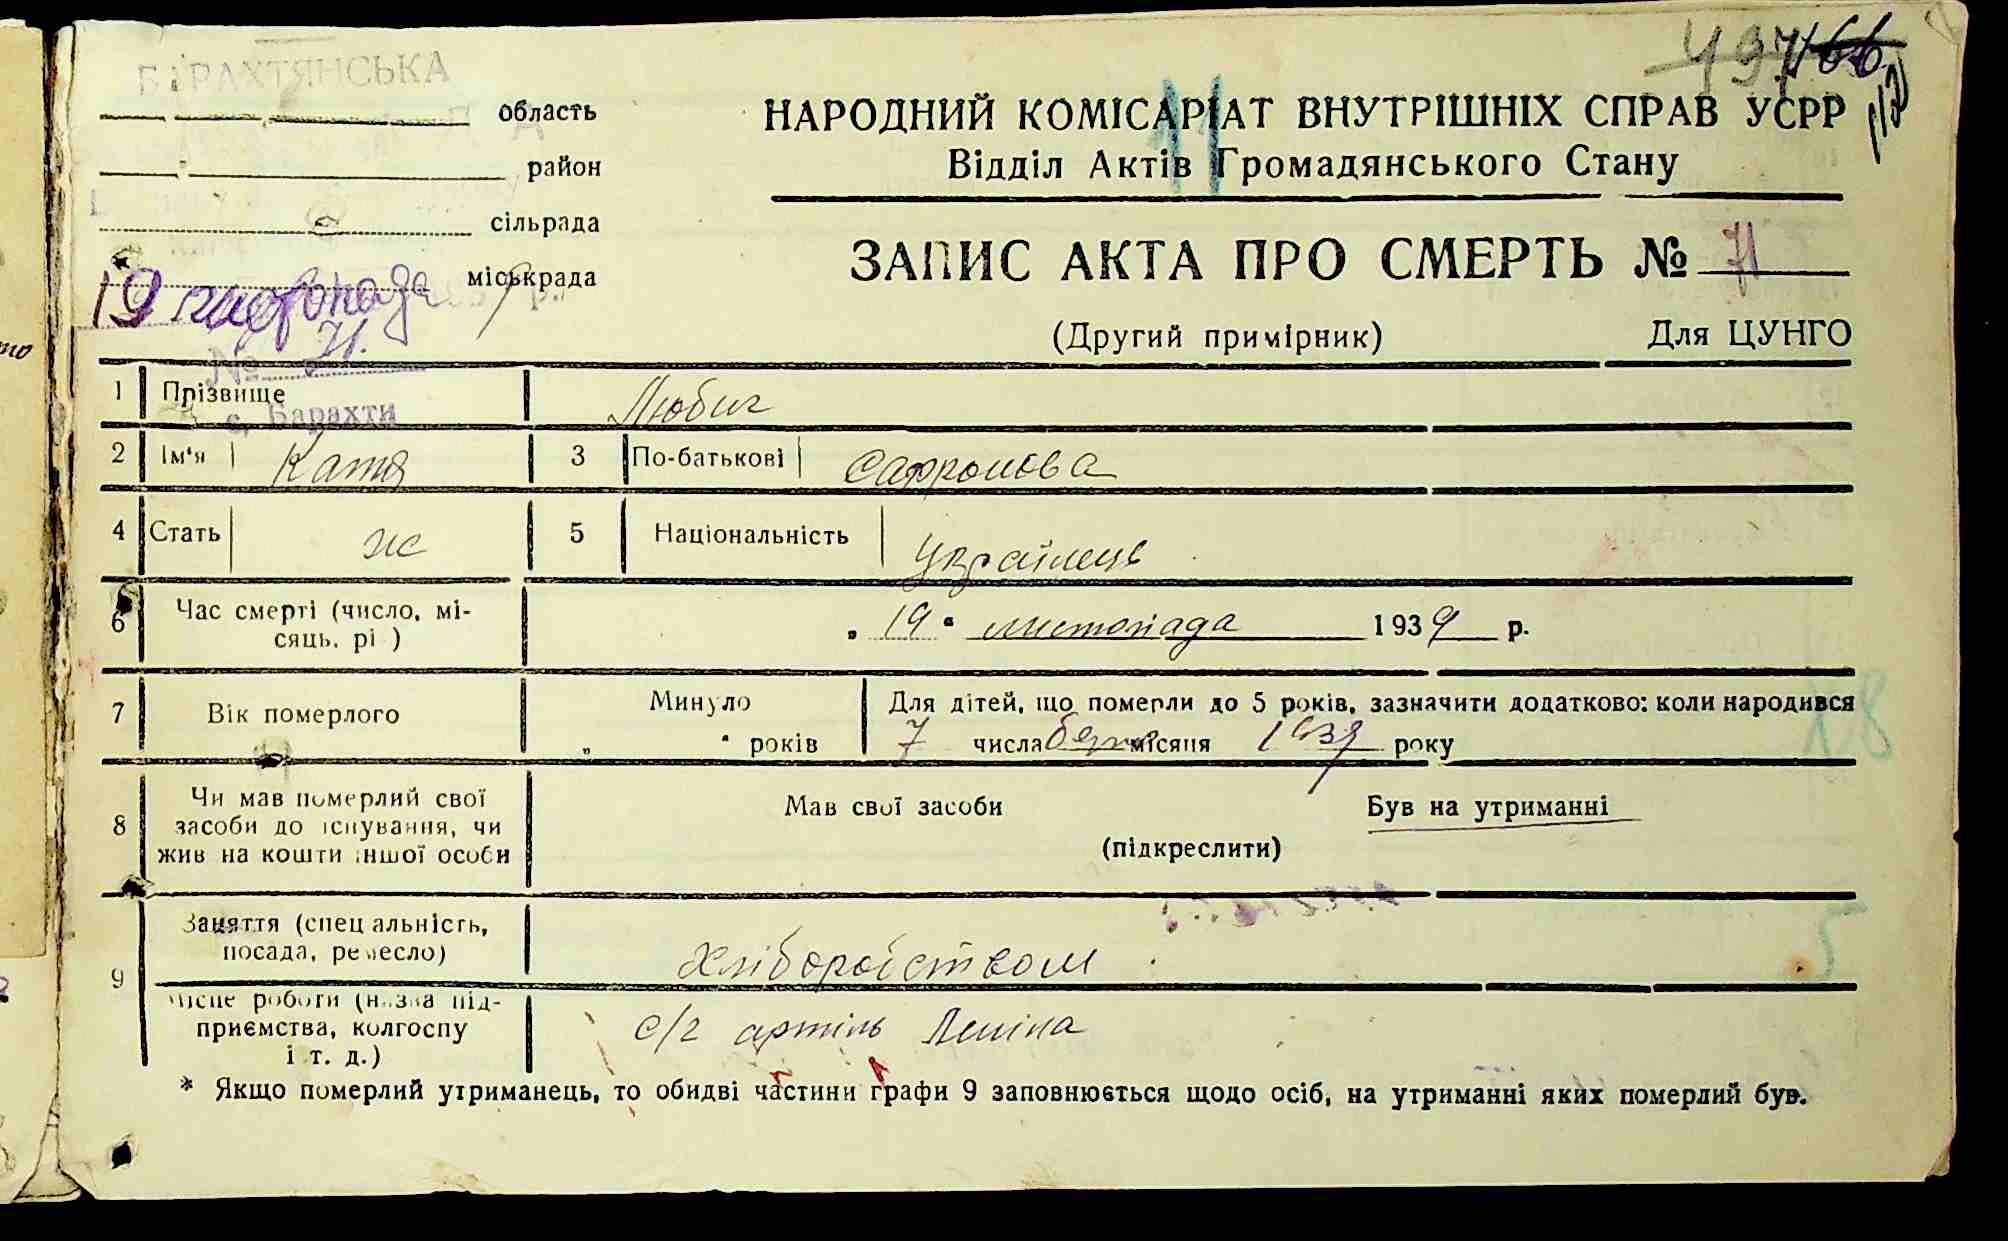 БАРАХТЯНСЬКА
область
район
сільрада
міськрада
19 листопада
№ 71.
с. Барахти
166
НАРОДНИЙ КОМІСАРІАТ ВНУТРІШНІХ СПРАВ УСРР
11
Відділ Актів Громадянського Стану
ЗАПИС АКТА ПРО СМЕРТЬ № 71
(Другий примірник) Для ЦУНГО
1 Прізвище Любич
2 Ім'я Катя 3 По-батькові Сафронова
4 Стать ж 5 Національність Українець
6 Час смерті (число, мі-
сяць, рі ) „ 19 " листопада 1939 р.
7 Вік померлого Минуло
„ " років
Для дітей, що померли до 5 років, зазначити додатково: коли народився
7 числа місяця 1939 року
8 Чи мав померлий свої
засоби до існування, чи
жив на кошти іншої особи
Мав свої засоби Був на утриманні
(підкреслити)
9 Заняття (спец альність,
посада, ремесло) хліборобством
Місце роботи (назва під-
приємства, колгоспу
і т. д.) с/г артіль Леніна
* Якщо померлий утриманець, то обидві частини графи 9 заповнюється щодо осіб, на утриманні яких померлий був.